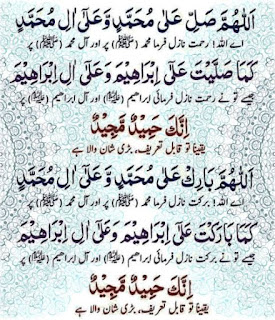 اَللّٰهُمَّ صَلِّ عَلٰى مُحَمَّدٍ وَّعَلٰٓى اٰلِ مُحَمَّدٍ
اے اللہ! رحمت نازل فرما محمد (ﷺ) پر اور آل محمد (ﷺ) پر
كَمَا صَلَّيْتَ عَلٰٓى اِبْرَاهِيْمَ وَعَلٰٓى اٰلِ اِبْرَاهِيْمَ
جیسے تو نے رحمت نازل فرمائی ابراھیم (علیہ السلام) پر اور آل ابراھیم (علیہ السلام) پر
اِنَّكَ حَمِيْدٌ مَّجِيْدٌ
یقیناً تو قابل تعریف، بڑی شان والا ہے
اَللّٰهُمَّ بَارِكْ عَلٰى مُحَمَّدٍ وَّعَلٰٓى اٰلِ مُحَمَّدٍ
اے اللہ! برکت نازل فرما محمد (ﷺ) پر اور آل محمد (ﷺ) پر
كَمَا بَارَكْتَ عَلٰٓى اِبْرَاهِيْمَ وَعَلٰٓى اٰلِ اِبْرَاهِيْمَ
جیسے تو نے برکت نازل فرمائی ابراھیم (علیہ السلام) پر اور آل ابراھیم (علیہ السلام) پر
اِنَّكَ حَمِيْدٌ مَّجِيْدٌ
یقیناً تو قابل تعریف، بڑی شان والا ہے